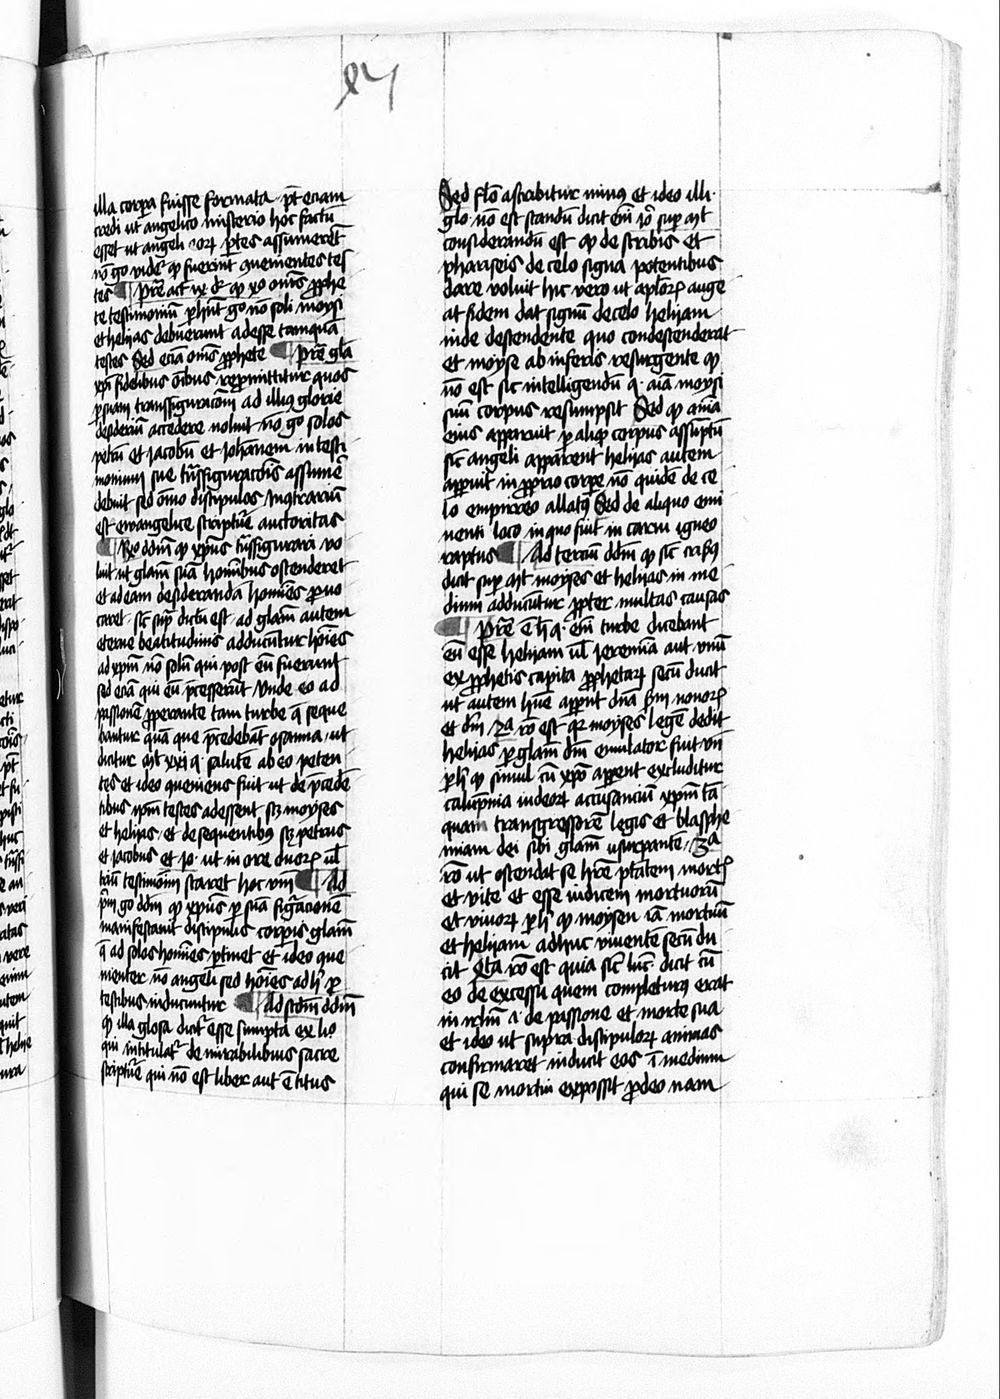 illa corpora fuisse formata pt̄ eciam
credi ut angelico misterio hoc factū
esset ut angeli eorꝝ ꝑtes assumerēt
nō gͦ vidr̄ qͦ fuerint ꝯuenientes tes
tes ¶ Pret̄ act ix dr̄ qͦ xͦ om̄s ꝓphe
te testimoniū ꝑhibēt gͦ nō soli moysi
et helyas debuerunt adesse tamquā
testes Sed eciā om̄s ꝓphete ¶ Pret̄ gl̄ia
xp̄i fidelibus oībus repromittitur quos
ꝑ suam transfiguracōm ad illiꝰ glorie
desideriū accēdere voluit nō gͦ solos
petrū et Jacobū et Joh̄annem in testi
monium sue tn̄sfiguracōis assumē
debuit sed om̄s discipulos
est ewangelice scripture auctoritas
¶ Rͦ dd̄m qͦ xp̄ūs tn̄sfigurari vo
luit ut glām suā hominibus ostenderet
et ad eam desiderandā homines ꝓuo
caret sic̄ sup̄ dictū est ad glām autem
eterne beatitudinis adducūtur hōies
ad xp̄m nō solū qui post eū fuerunt
sed eciā qui eū p̄cesserūt Vnde eo ad
passionē ꝓperante tam turbe q̄ seque
bantur quā que p̄cedebāt osanna ut
dicitur mt̄ xxi q̄ salutē ab eo peten
tes et ideo ꝯueniens fuit ut de p̄cedē
tibus ip̄m testes adessent sꝫ moyses
et helyas et de sequentibꝰ sꝫ petrus
et Jacobus et Jo ut in ore duorꝝ ul̄
triū testimoīm staret hoc vm̄ ¶ Ad
p̄m gͦ dd̄m qͦ xp̄ūs ꝑ suā figracionē
manifestauit discipulis corporis glām
q̄ ad solos homīes ꝑtinet et ideo que
nienter nō angeli seo hoīes ad hͦ ꝓ
testibus inducuntur ¶ Ad scd̄m dd̄m
qͦ illa glosa dicitr̄ esse sumpta ex liͦ
qui intitulatr̄ de mirabilibus sacre
scripture qui nō est liber autētitus
Sed flō ascribitur minꝰ et ideo illi
glō nō est standū dicit em̄ Jō sup mt̄
considerandū est qͦ de scribis et
phariseis de celo signa potentibus
dare voluit hic vero ut apl̄orꝝ auge
at fidem dat signū de celo helyam
inde descendente quo condescenderat
et moyse ab inferis resurgente qͦ
nō est sic intelligendū q̄ aīa moysi
suū corpus resumpsit Sed qͦ aīa
eius apparuit ꝑ aliqͦ corpus assūptū
sic̄ angeli apparent helyas autem
apparuit in ꝓprio corpe nō quidē de ce
lo empirreo allatꝰ Sed de aliquo emi
nenti loco in quo fuit in curru igneo
raptus ¶ Ad terciū dd̄m qͦ sic
dicit sup mt̄ moyses et helyas in me
dium adducūtur ꝓpter multas causas
¶ Pret̄ ē hͦ q̄ em̄ turbe dicebant
eū esse helyam ul̄ Jeremiā aut vnū
ex ꝓphetis capita ꝓphetarꝝ secū ducit
ut autem
et dm̄ 2ᵃ rō est qr̄ moyses legē dedit
helyas ꝑ glām dm̄ emulator fuit vn̄
ꝑ hͦ qͦ simul cū xp̄o apꝑent excluditur
calūpnia iudeorꝝ accusanciū xp̄m tā
quam transgressorē legis et blasphe
miam dei sibi glām usurpante 3ᵃ
rō ut ostendat se hr̄e ptātem mortꝭ
et vite et esse iudicem mortuorū
et viuorꝝ ꝑ hͦ qͦ moysen iā mortuū
et helyam adhuc viuentē secū du
cit Qͬta rō est quia sic̄ luc̄ dicit cū
eo de excessu quem completurꝰ erat
in irl̄m i de passione et morte sua
et ideo ut supra discipulorꝝ animas
confirmaret inducit eos ī medium
qui se morti exposuit ꝓ deo nam